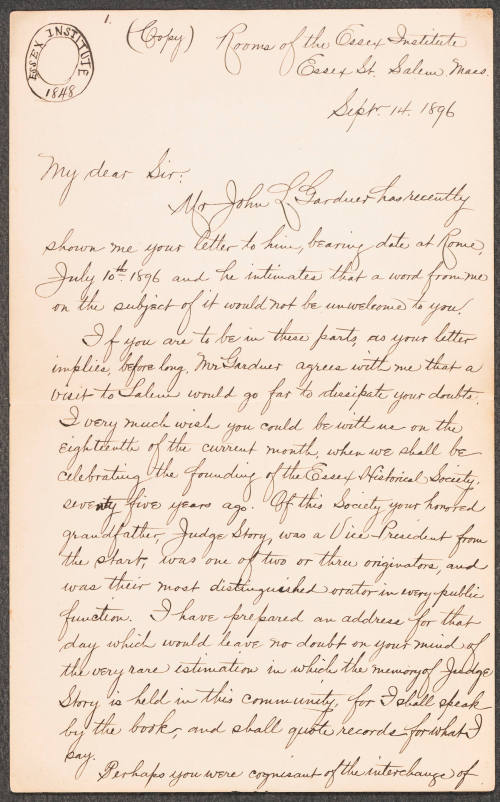 1.
(Copy)
ESSEX INSTITUTE
1848
Rooms of the Essex Institute
Essex St. Salem Mass.
Sept. 14. 1896
My dear Sir:
Mr John L. Gardner has recently
shown me your letter to him, bearing date at Rome,
July 10th 1896 and he intimates that a word from me
on the subject of it would not be unwelcome to you.
If you are to be in these parts, as your letter
implies, before long, Mr Gardner agrees with me that a
visit to Salem would go far to dissipate your doubts.
I very much wish you could be with us on the
eighteenth of the current month, when we shall be
celebrating the founding of the Essex Historical Society,
seventy five years ago. Of this Society your honored
grandfather, Judge Story, was a Vice President from
the start, was one of two or three originators, and
was their most distinguished orator in every public
function. I have prepared an address for that
day which would leave no doubt on your mind of
the very rare estimation in which the memory of Judge
Story is held in this community, for I shall speak
by the book, and shall quote records for what I
say.
Perhaps you were cognisant of the interchange of